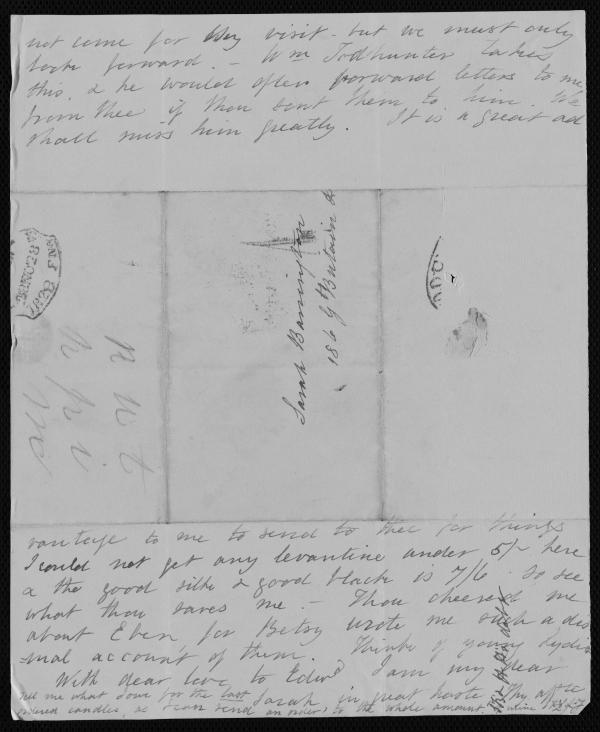 not come for thy visit - but we must only
look forward. - Wm Todhunter takes
this, & he would often forward letters to me
from thee if thou sent them to him. We
shall miss him greatly. It is a great ad
Sarah Barrington
186 Gt Britain
vantage to me to send to thee for things
I could not get any levantine under 5/- here
& the good silk & good black is 7/6 - so see
what thou saves me. - Thou cheered me
about Eben for Betsy wrote me such a dis
mal account of them. Think of young Lydia
With dear love to Edwd I am my dear
Sarah in great haste Thy affte
tell me what I owe for the last
candles, as I can send an order for the whole amount.